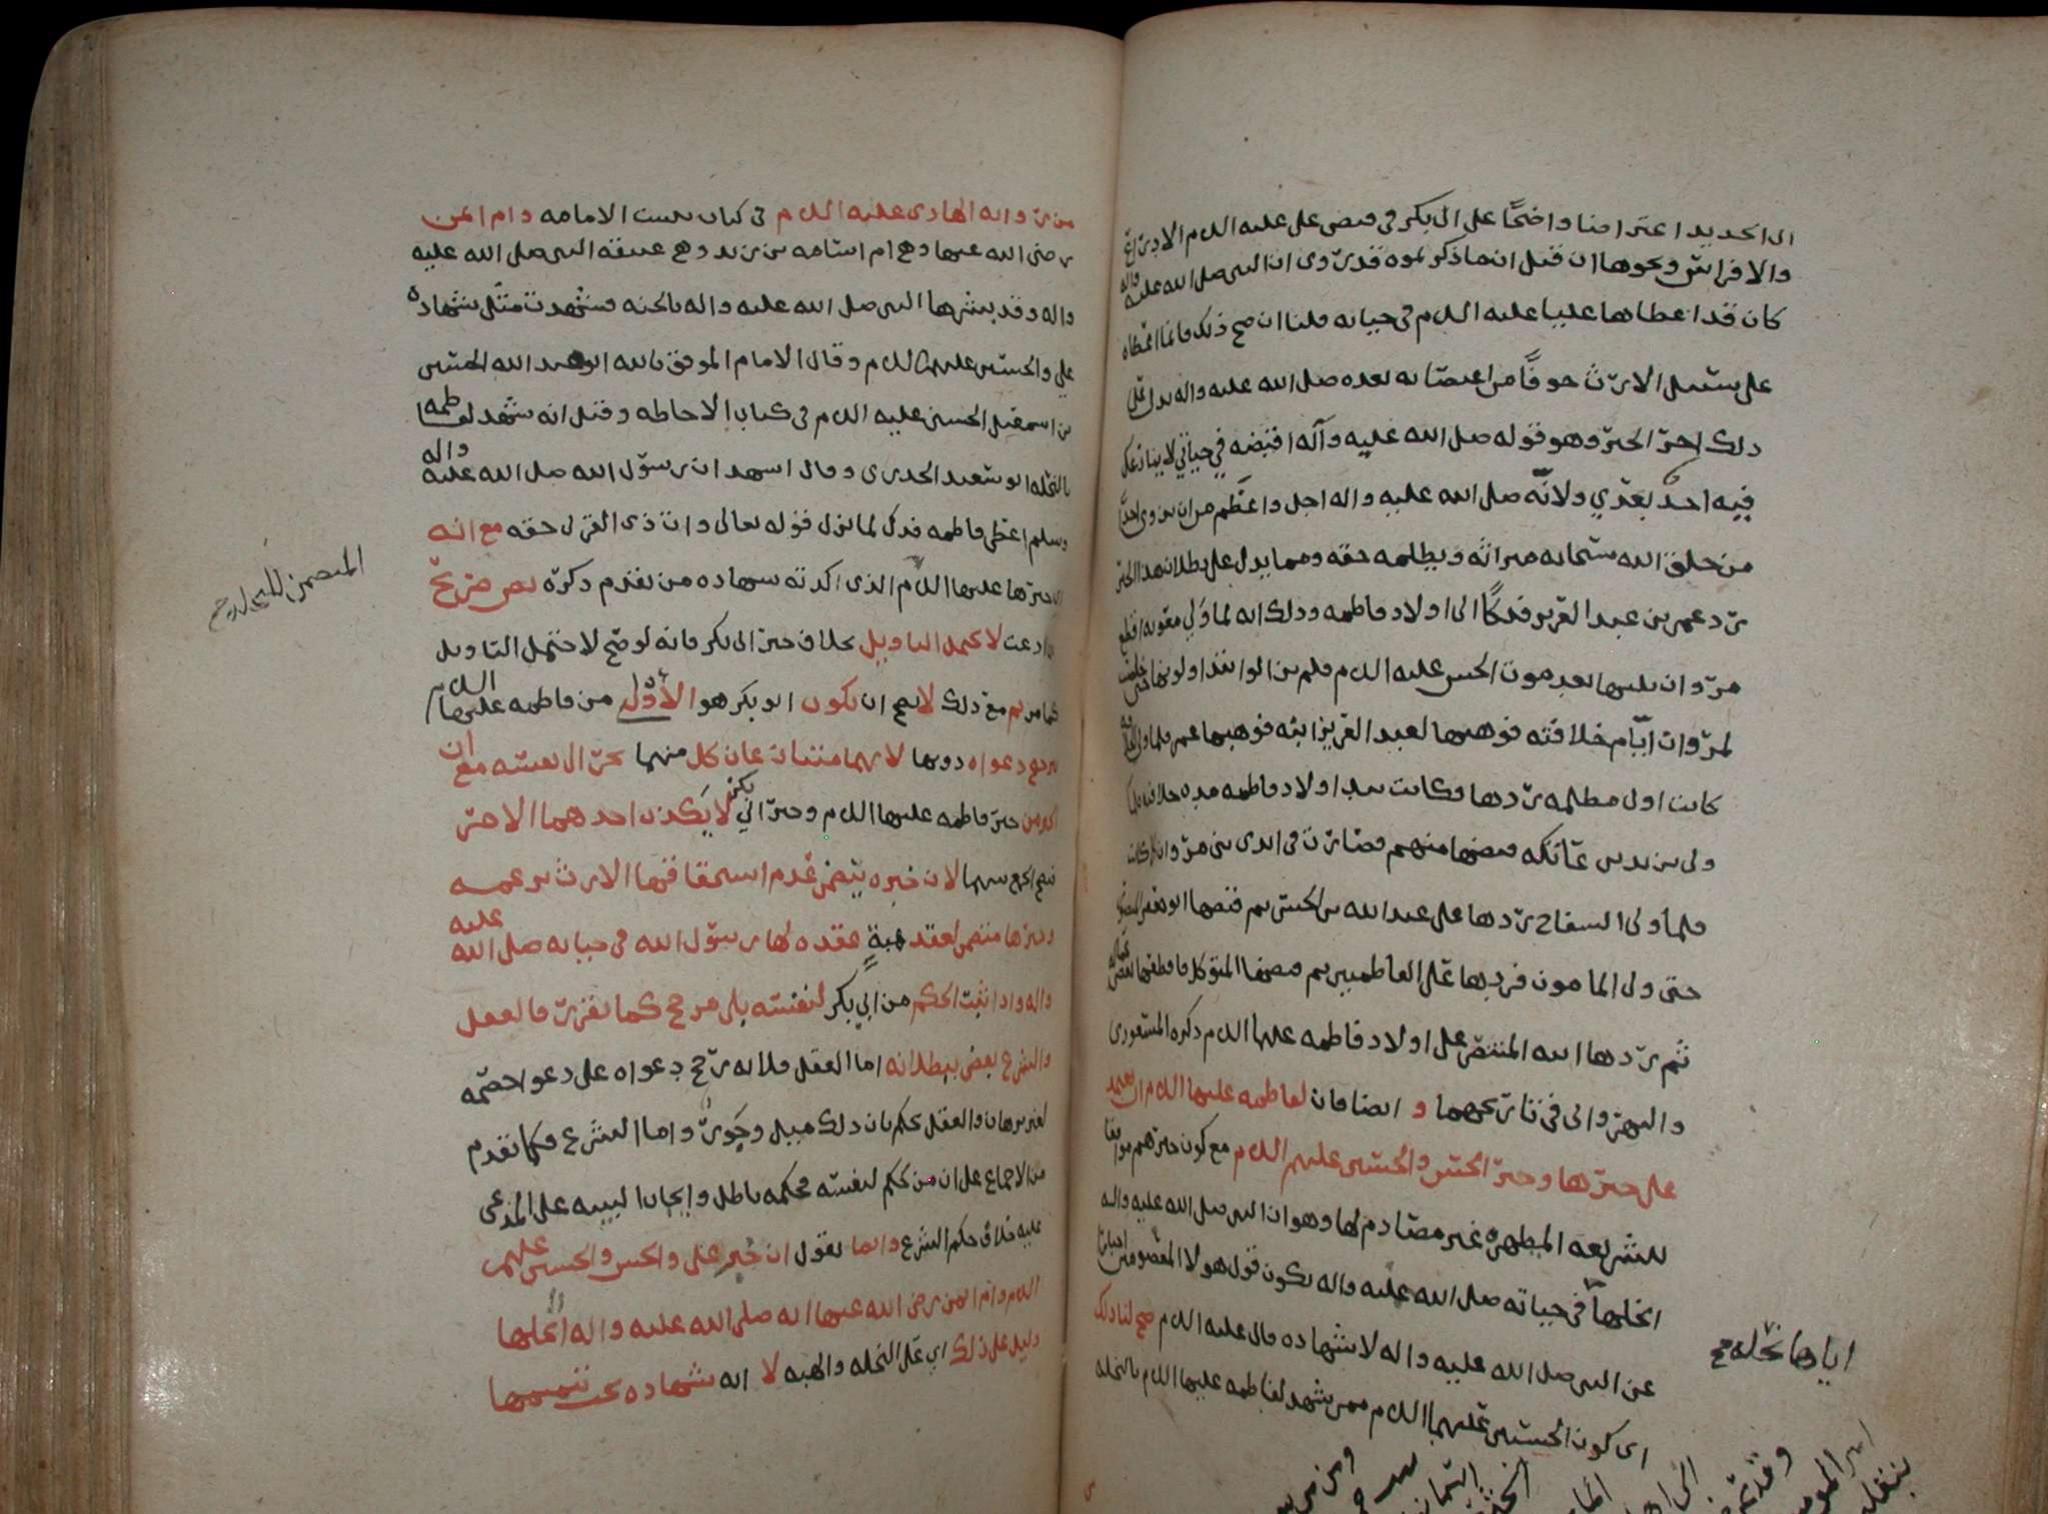 ابى الحديد اعتراضا واضحًا على ابى بكر فى قبض على عليه السلام الادرع
والافراس ونحوها ان قيل انما ذكرتموه قد روى ان النبى صلى الله عليه واله
كان قد اعطاها عليا عليه السلام فى حياته قلنا ان صح ذلك فانما اعطاه
على سبيل الارث خوفًا من اغتصابه بعده صلى الله عليه واله يدل على
ذلك اخر الخبر وهو قوله صلى الله عليه وآله اقبضه في حياتي لا ينازعك
فيه احدٌ بعدي ولانّه صلى الله عليه واله اجل واعظم من ان يزوى احدًا
من خلق الله سبحانه ميراثه ويظلمه حقه ومما يدل على بطلان هذا الخبر
رد عمر بن عبد العزيز فدكًا الى اولاد فاطمه وذلك انه لما وُلي معويه اقطع
مروان ثلثها بعد موت الحسن عليه السلام فلم يزالوا يتداولونها حتى خلصت
لمروان ايّام خلافته فوهبها لعبد العزيز ابنه فوهبها عمر فلما ولى
كانت اول مظلمه ردها وكانت بيد اولاد فاطمه مده خلافته فلما
ولى يزيد بن عاتكه قبضها منهم فصارت فى ايدى بنى مروان كما كانت
فلما ولى السفاح ردها على عبد الله بن الحسن ثم قبضها ابو جعفر
حتى ولى المامون فردها على الفاطميين ثم قبضها المتوكل فاقطعها بعض
ثم ردها ابنه المنتصر على اولاد فاطمه عليها السلام ذكره المسعودى
والبهروانى فى تاريخهما و ايضا فان لفاطمه عليها السلام ان تعتمد
على خبرها وخبر الحسن والحسين عليهم السلام مع كون خبرهم موافقا
للشريعه المطهره غير مصادم لها وهو ان النبى صلى الله عليه واله
انحلها فى حياته صلى الله عليه واله يكون قول هولا المعصومين اخبارا
عن النبى صلى الله عليه واله لا شهاده قال عليه السلام صح لنا ذلك
اى كون الحسنين عليهما السلام ممن شهد لفاطمه عليها السلام بالنحله
اياها نحله صح
من روايه الهادى عليه السلام فى كتاب تثبيت الامامه وام ايمن
رضى الله عنها وهى ام اسامه بن زيد وهى عتيقه النبى صلى الله عليه
واله وقد بشرها النبى صلى الله عليه واله بالجنه فشهدت مثل شهاده
علي والحسنين عليهم السلام وقال الامام الموفق بالله ابو عبد الله الحسين
بن اسمعيل الحسنى عليه السلام فى كتاب الاحاطه وقيل انه شهد لفاطمه
بالنحله ابو سعيد الخدرى وقال اشهد ان رسول الله صلى الله عليه واله
وسلم اعطى فاطمه فدك لما نزل قوله تعالى وات ذى القربى حقه مع انه
اى خبرها عليها السلام الذى اكدته شهاده من تقدم ذكره نص صريح
فيما ادعت لا يحتمل التاويل بخلاف خبر ابى بكر فانه لو صح لاحتمل التاويل
كما مر ثم مع ذلك لا يصح ان يكون ابو بكر هو الأوْلى من فاطمه عليها السلام
برجوع دعواه دونها لانهما متنازعان كل منهما يجر الى نفسه مع ان
كلا من خبر فاطمه عليها السلام وخبر ابي بكر لا يكذب احدهما الاخر
فيصح الجمع بينهما لان خبره يتضمن عدم استحقاقها الارث بزعمه
وخبرها متضمن لعقد هبةٍ عقده لها رسول الله فى حياته صلى الله عليه
واله واذا ثبت الحكم من ابي بكر لنفسه بلى مرجح كما تقرر فالعقل
والشرع يقضى ببطلانه اما العقل فلانه رجح دعواه على دعوا خصمه
لغير برهان والعقل يحكم بان ذلك ميل وجَورٌ واما الشرع فكما تقدم
من الاجماع على ان من حكم لنفسه فحكمه باطل وايجاب البينه على المدعى
عليه خلاف حكم الشرع وانما نقول ان خبر على والحسن والحسين عليهم
السلام وام ايمن رضى الله عنها انه صلى الله عليه واله انحلها
دليل على ذلك اي على النحله والهبه لا انه شهاده يجب تتميمها
المتضمن